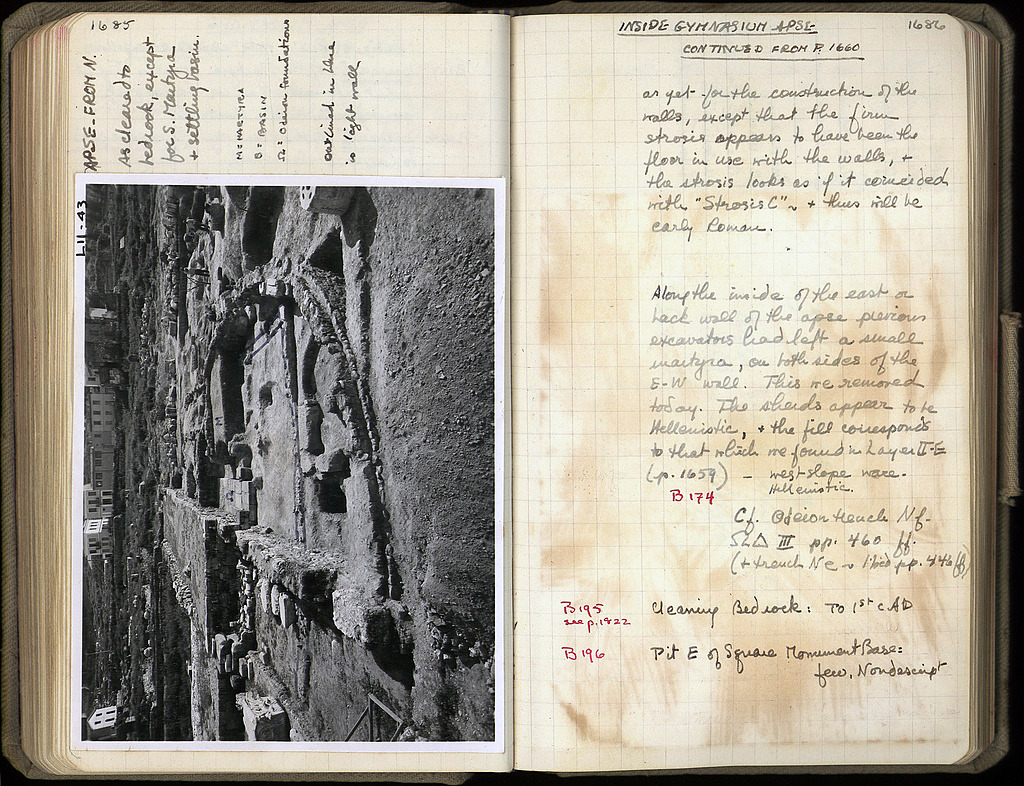 1685
APSE-FROM N.
As cleaned to
bedrock, except
for S. Martyra
+ settling basin.
M = MARTYRA
B = BASIN
Ω = Odeion foundations
outlined in blue
is light wall
LII-43
INSIDE GYMNASIUM APSE
1686
CONTINUED FROM P. 1660
as yet for the construction of the
walls, except that the firm
strosis appears to have been the
floor in use with the walls, +
the strosis looks as if it coincided
with "Strosis C" ~ + thus will be
early Roman.
Along the inside of the east or
back wall of the apse previous
excavators had left a small
martyra, on both sides of the
E-W wall. This we removed
today. The sherds appear to be
Hellenistic, + the fill corresponds
to that which we found in Layer II-E
(p. 1659) – west slope ware.
Hellenistic.
B 174
Cf. Odeion trench Nf.
ΩΔ III pp. 460 ff.
(+ trench Ne ~ ibid pp. 446 ff)
B195
see p. 1822
Cleaning Bedrock: To 1st c AD
B196
Pit E of Square Monument Base:
few, Nondescript